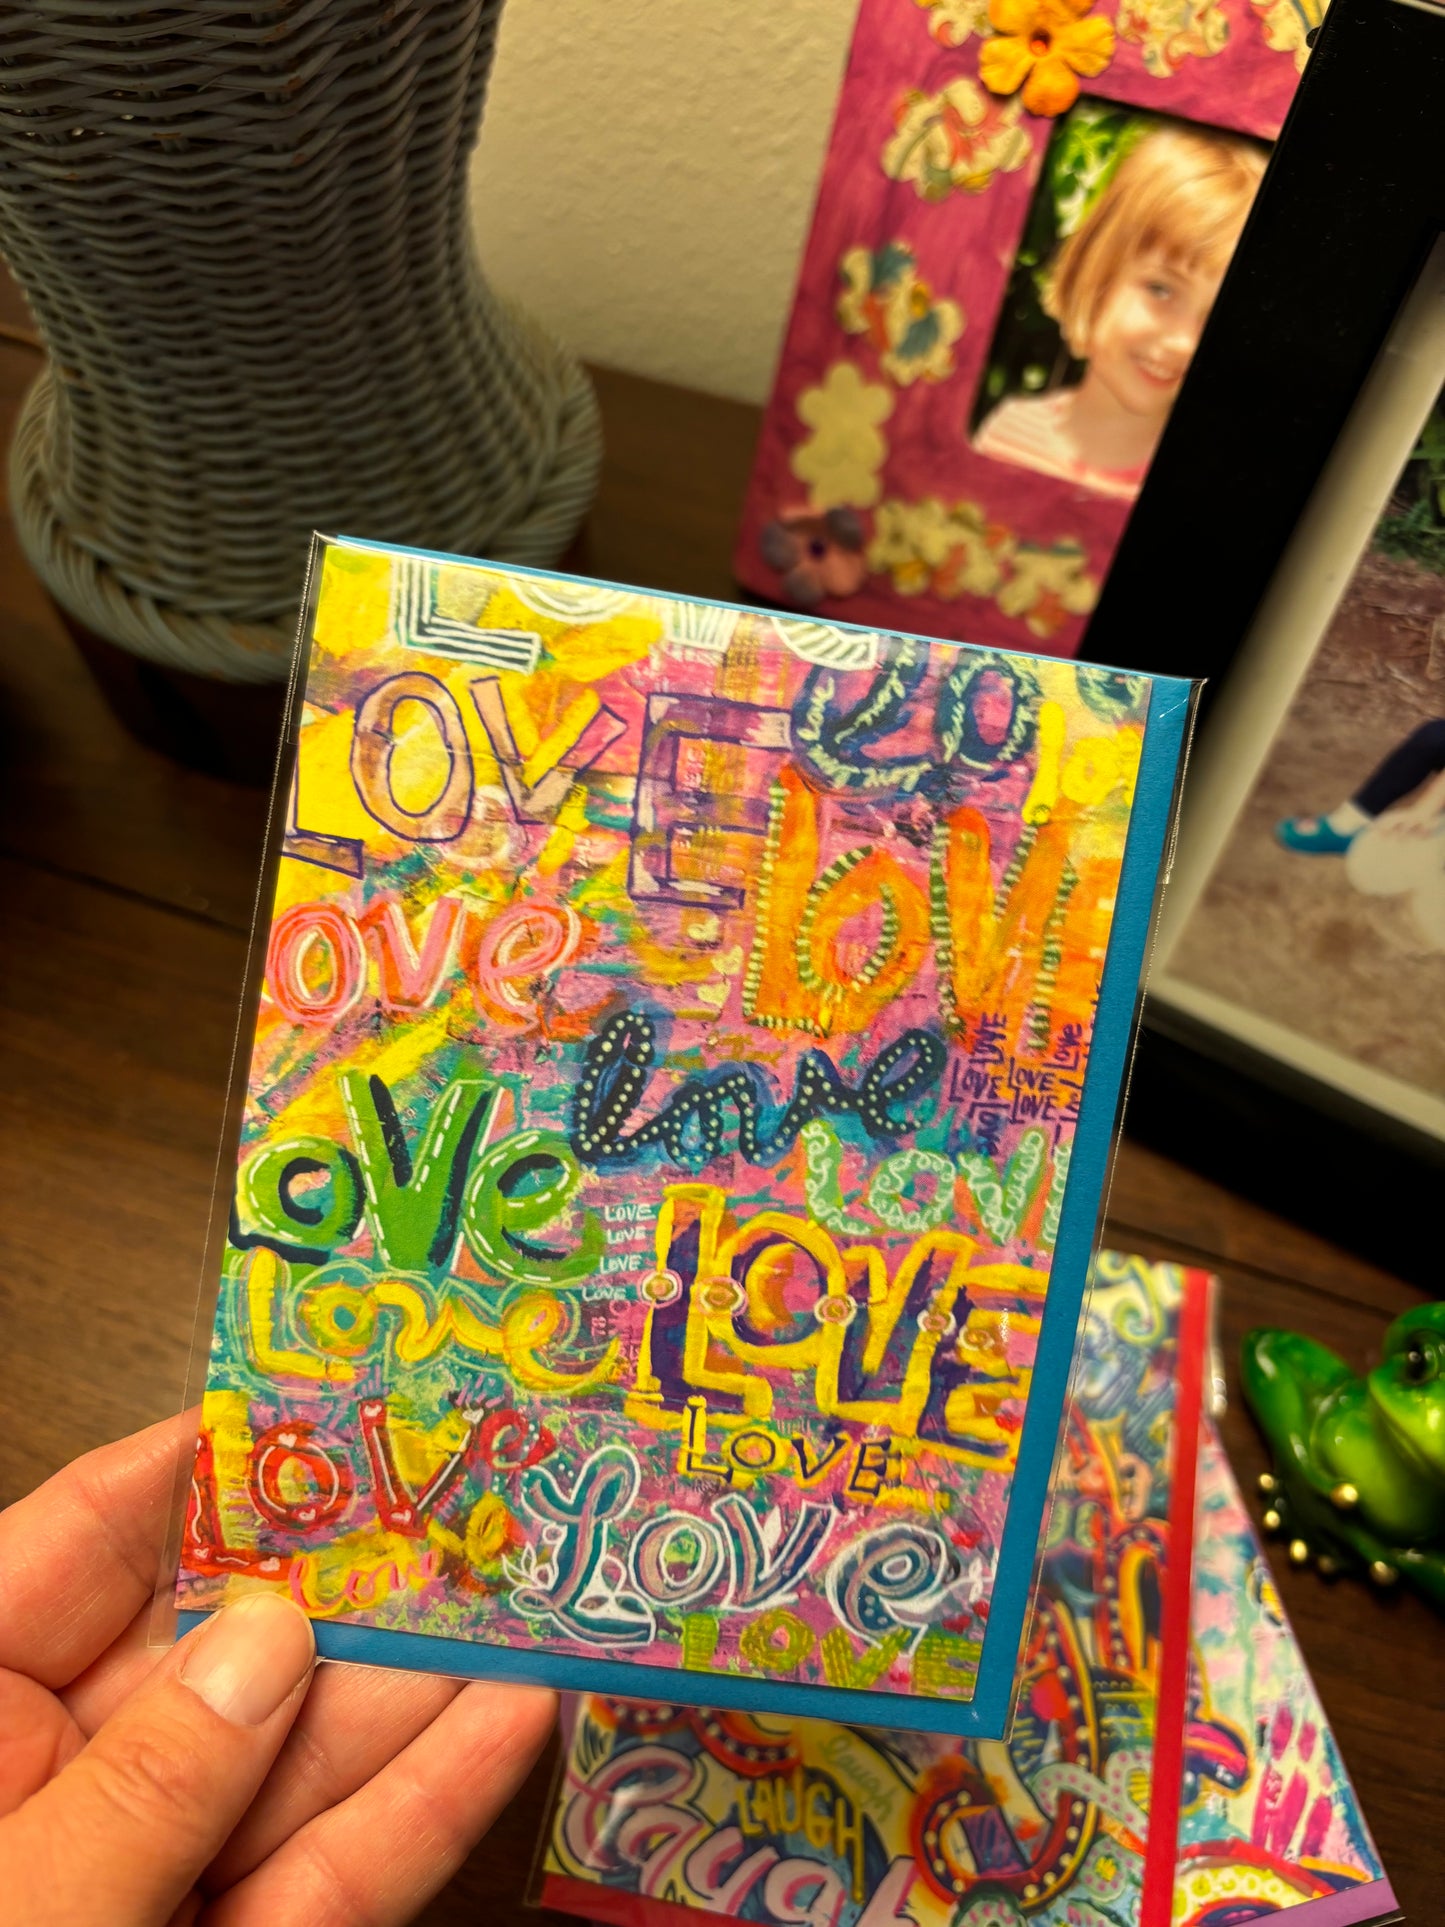 LOVE
LOVE
Lo
love
LOV
love
love
LOVE
LOVE
LOVE
LOVE
LOVE
love
LOV
LOVE
LOVE
LOVE
LOVE
LOVE
Love
LOVE
LOVE
LOVe
Love
love
LOVE
Laugh
LAUGH
Laugh